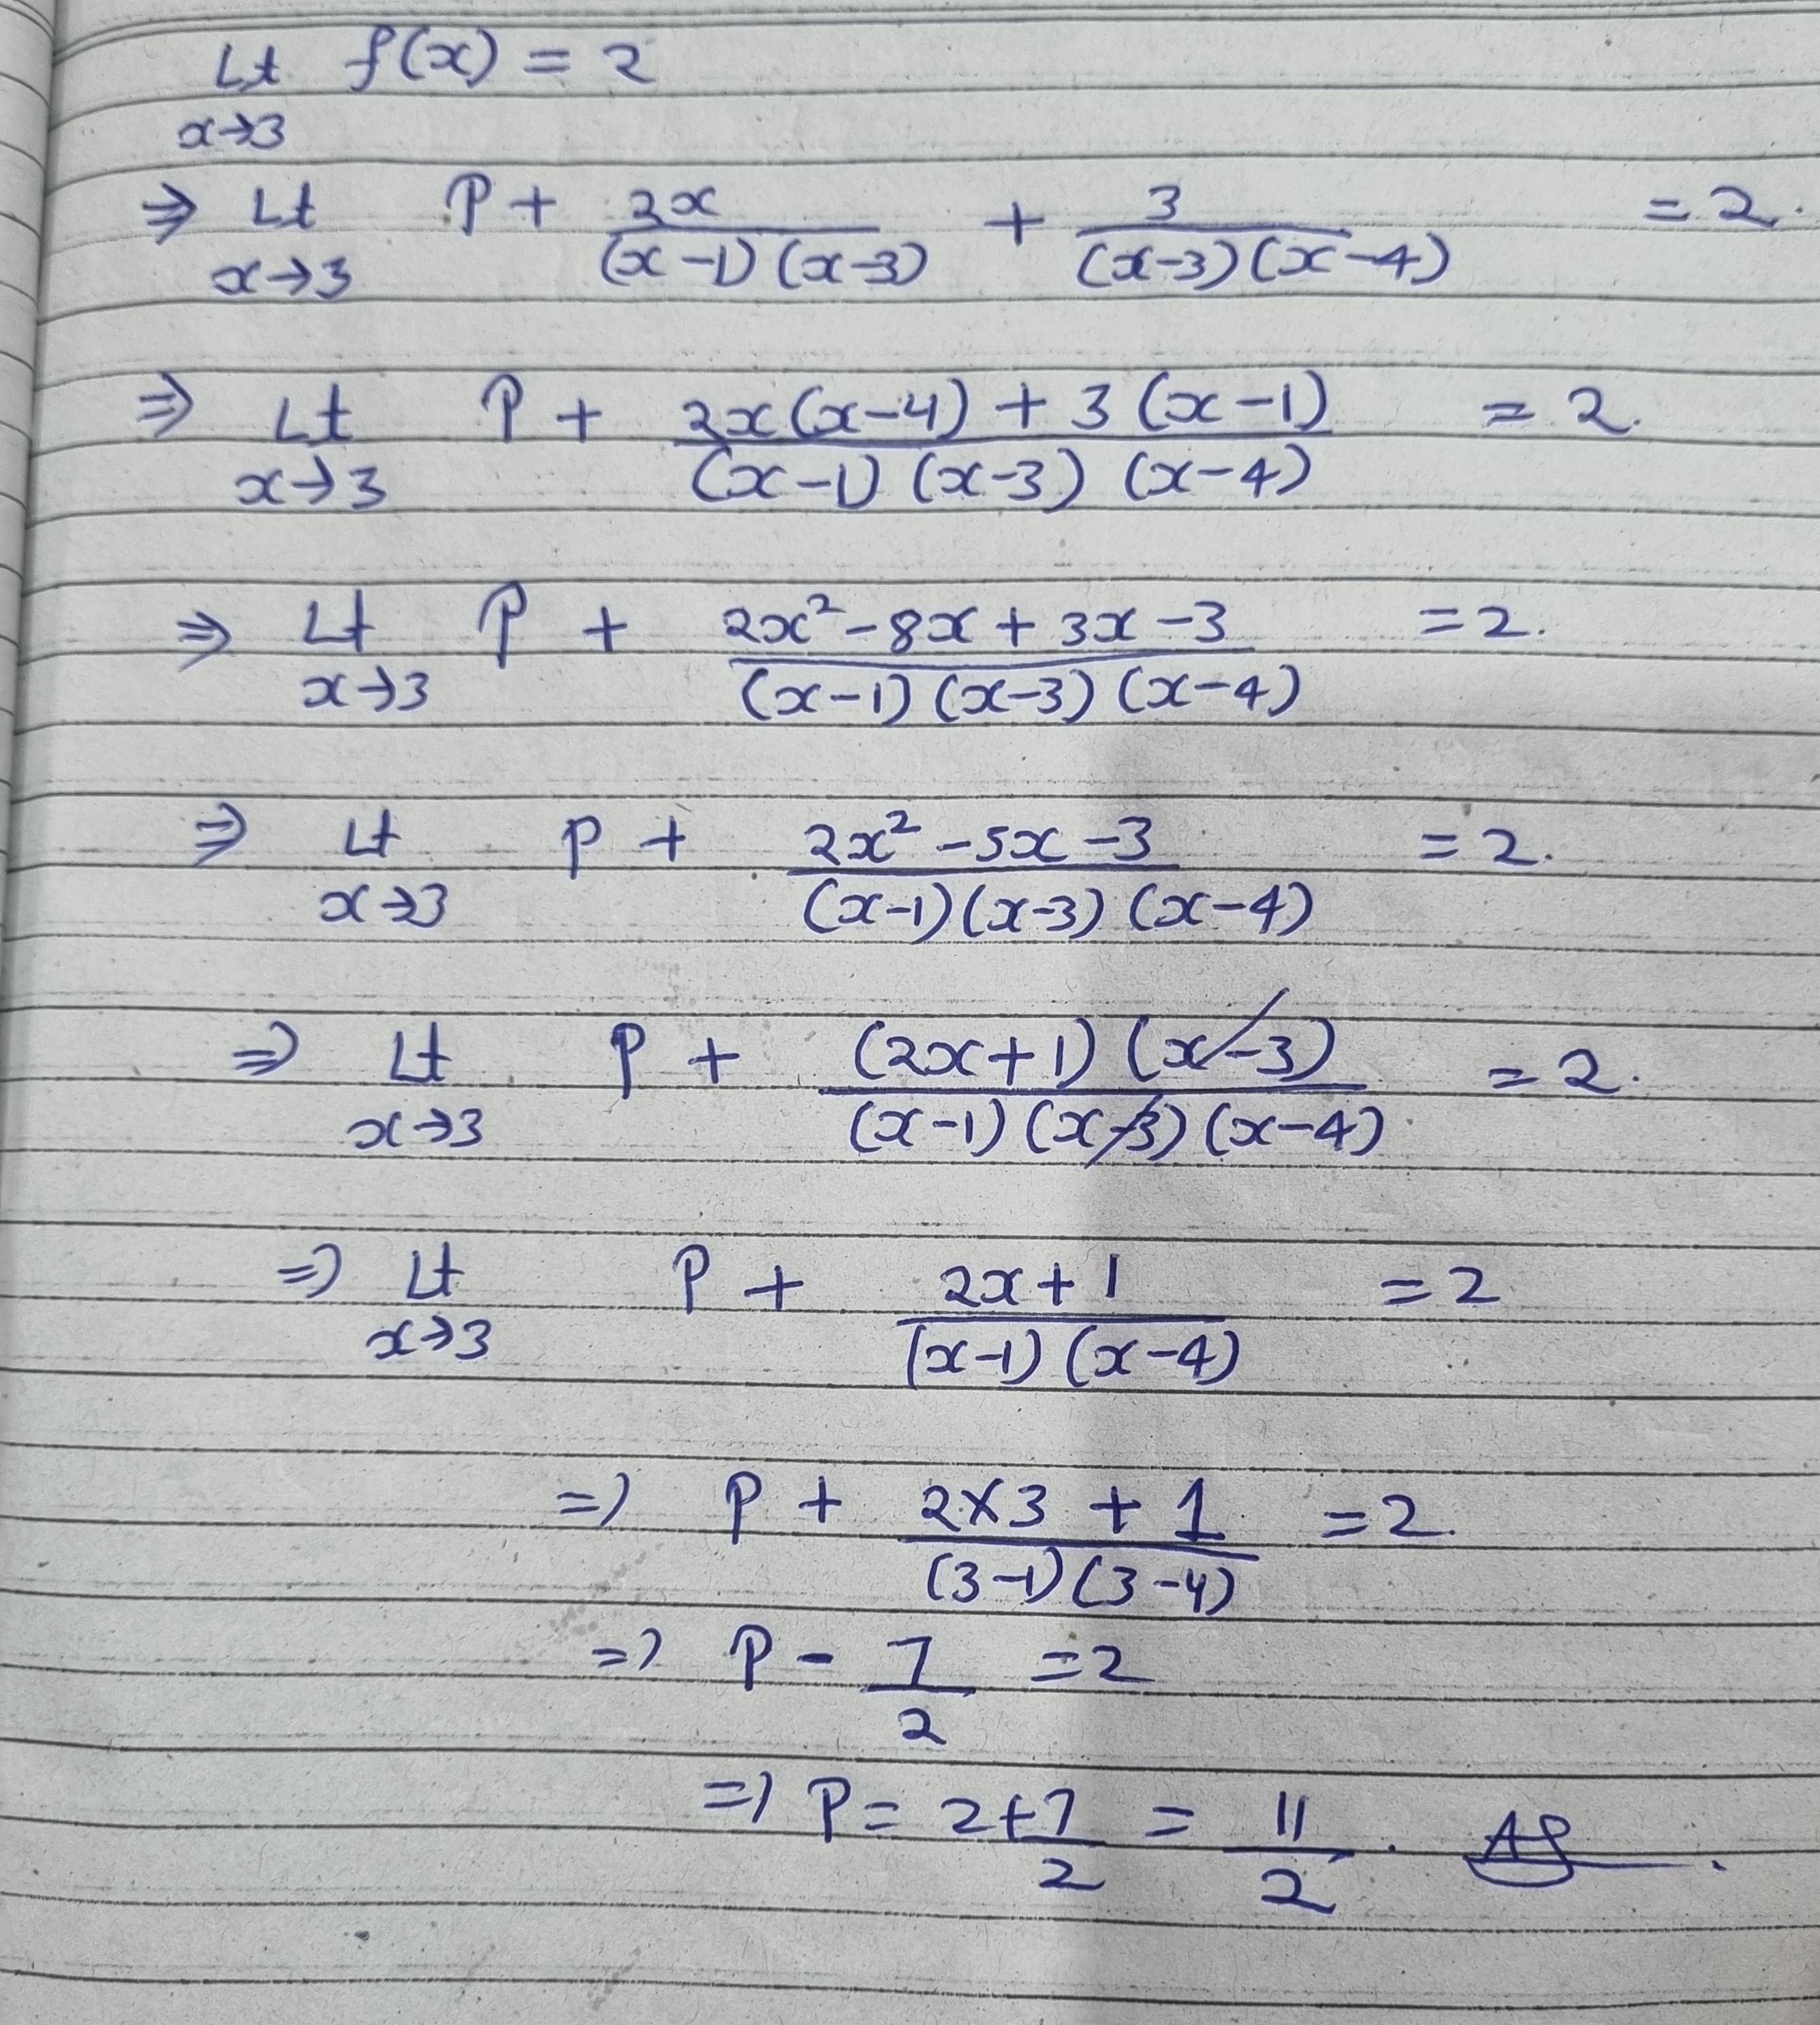 Lt f(x) = 2
x→3
⇒ Lt P + 2x/((x-1)(x-3)) + 3/((x-3)(x-4)) = 2.
x→3
⇒ Lt P + (2x(x-4) + 3(x-1))/((x-1)(x-3)(x-4)) = 2.
x→3
⇒ Lt P + (2x² - 8x + 3x - 3)/((x-1)(x-3)(x-4)) = 2.
x→3
⇒ Lt P + (2x² - 5x - 3)/((x-1)(x-3)(x-4)) = 2.
x→3
⇒ Lt P + ((2x+1)(x-3))/((x-1)(x-3)(x-4)) = 2.
x→3
⇒ Lt P + (2x+1)/((x-1)(x-4)) = 2
x→3
⇒ P + (2×3 + 1)/((3-1)(3-4)) = 2.
⇒ P - 7/2 = 2
⇒ P = 2+7/2 = 11/2.